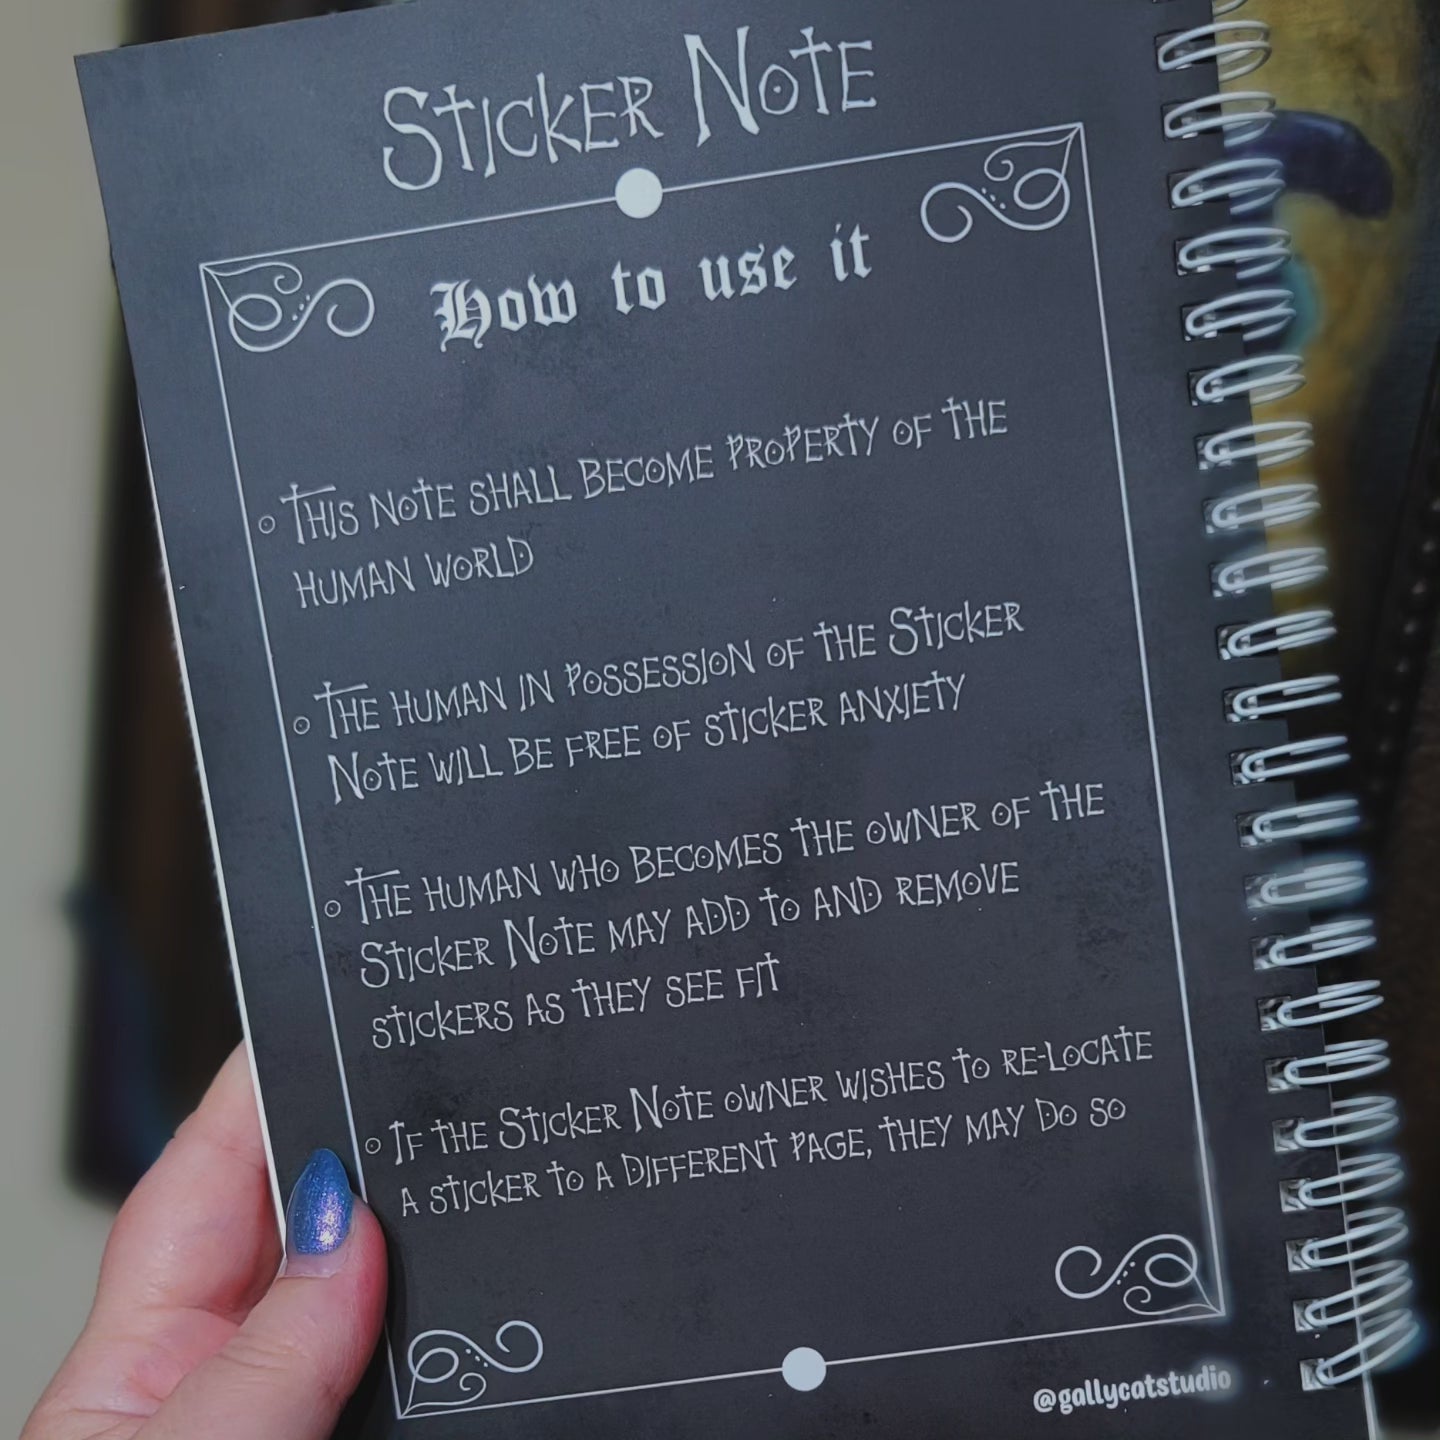 Sticker Note
How to use it
This note shall become property of the
human world
The human in possession of the Sticker
Note will be free of sticker anxiety
The human who becomes the owner of the
Sticker Note may add to and remove
stickers as they see fit
If the Sticker Note owner wishes to re-locate
a sticker to a different page, they may do so
@gallycatstudio